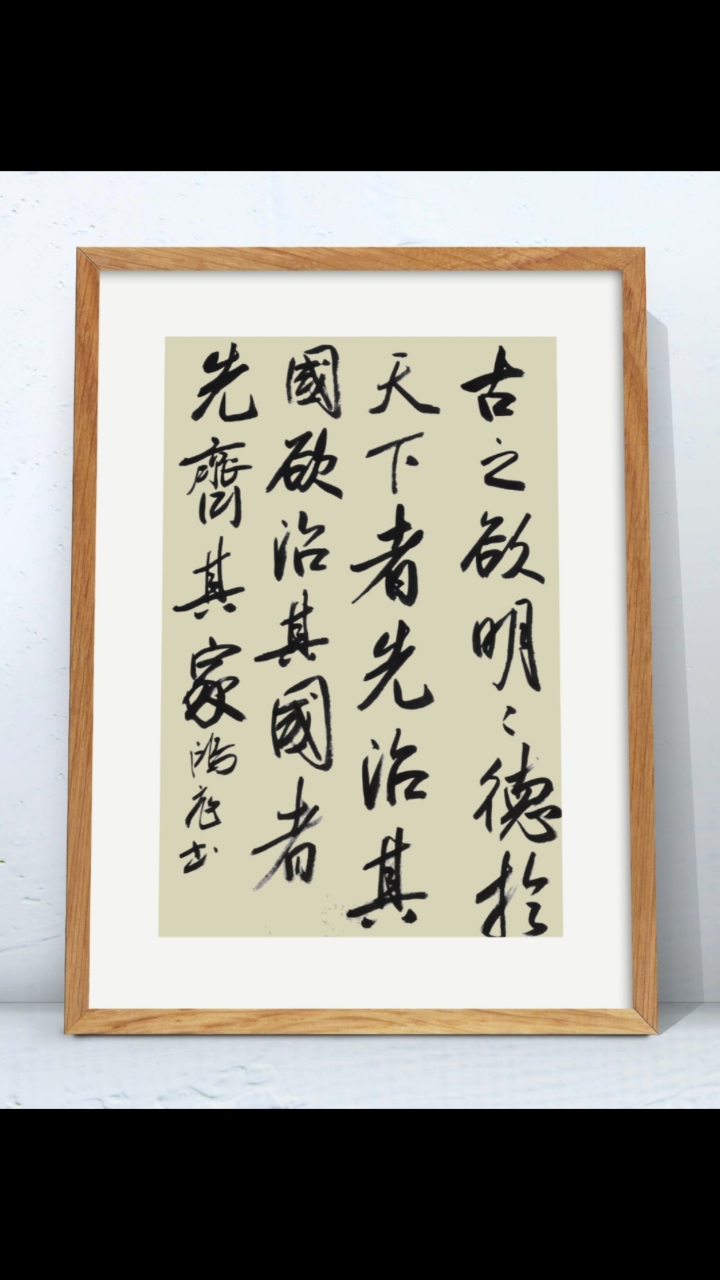 古之欲明〻德於
天下者先治其
國欲治其國者
先齊其家鴻庭書